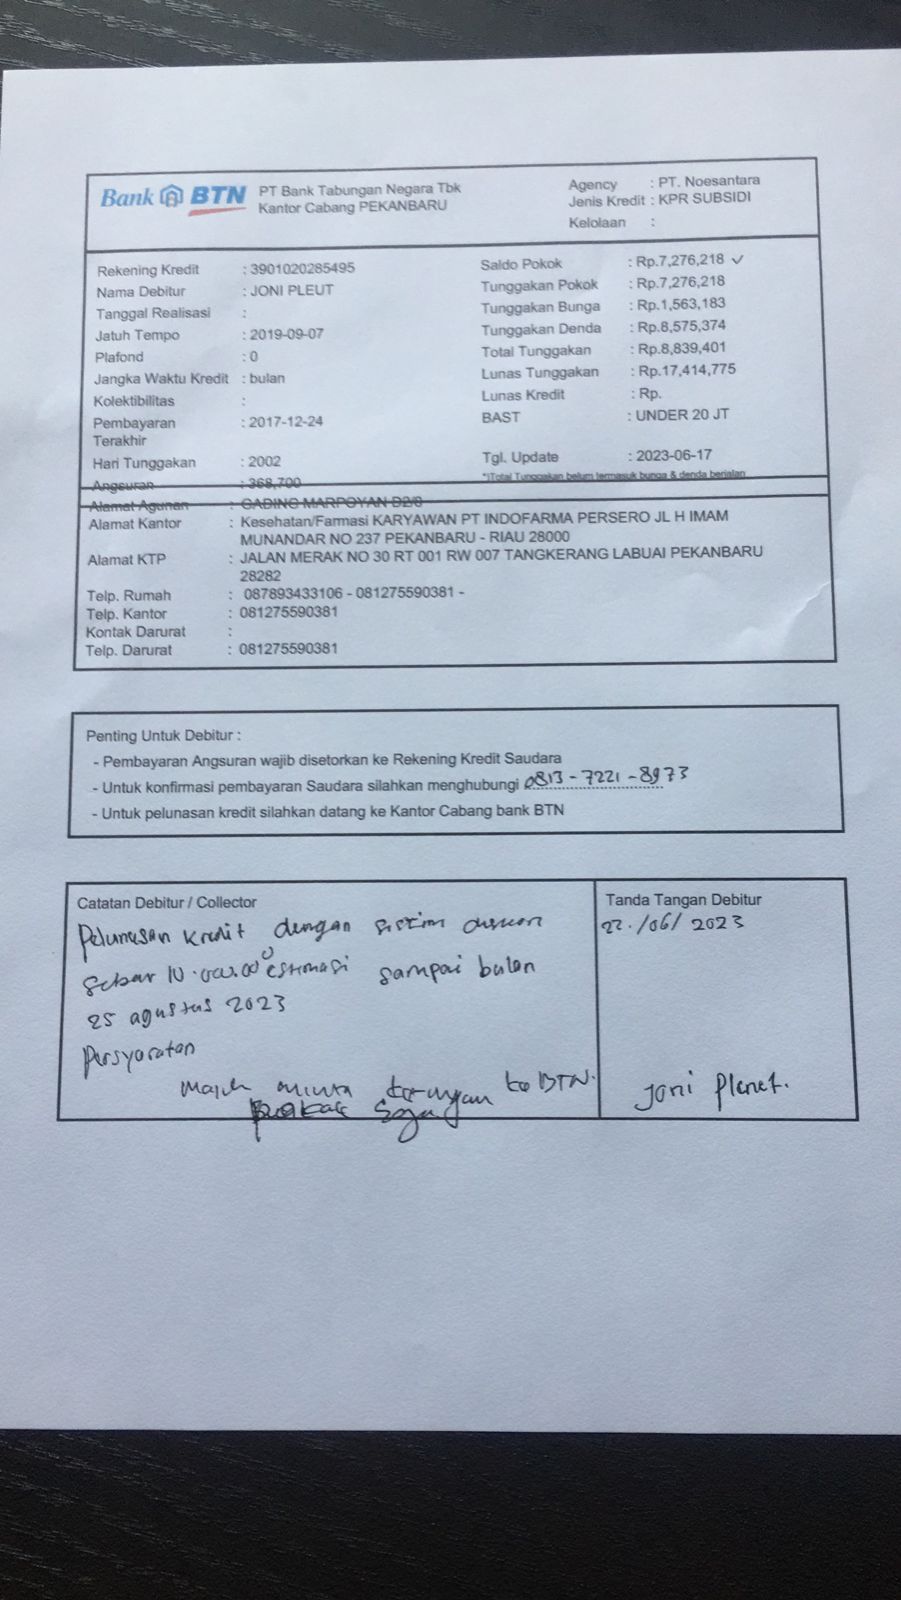 Bank BTN
PT Bank Tabungan Negara Tbk
Kantor Cabang PEKANBARU
Agency : PT. Noesantara
Jenis Kredit : KPR SUBSIDI
Kelolaan :
Rekening Kredit : 3901020285495
Nama Debitur : JONI PLEUT
Tanggal Realisasi :
Jatuh Tempo : 2019-09-07
Plafond : 0
Jangka Waktu Kredit : bulan
Kolektibilitas :
Pembayaran Terakhir : 2017-12-24
Hari Tunggakan : 2002
Angsuran : 368,700
Saldo Pokok : Rp.7,276,218 ✓
Tunggakan Pokok : Rp.7,276,218
Tunggakan Bunga : Rp.1,563,183
Tunggakan Denda : Rp.8,575,374
Total Tunggakan : Rp.8,839,401
Lunas Tunggakan : Rp.17,414,775
Lunas Kredit : Rp.
BAST : UNDER 20 JT
Tgl. Update : 2023-06-17
*)Total Tunggakan belum termasuk bunga & denda berjalan
Alamat Agunan : GADING MARPOYAN
Alamat Kantor : Kesehatan/Farmasi KARYAWAN PT INDOFARMA PERSERO JL H IMAM
MUNANDAR NO 237 PEKANBARU - RIAU 28000
Alamat KTP : JALAN MERAK NO 30 RT 001 RW 007 TANGKERANG LABUAI PEKANBARU
28282
Telp. Rumah : 087893433106 - 081275590381 -
Telp. Kantor : 081275590381
Kontak Darurat :
Telp. Darurat : 081275590381
Penting Untuk Debitur :
- Pembayaran Angsuran wajib disetorkan ke Rekening Kredit Saudara
- Untuk konfirmasi pembayaran Saudara silahkan menghubungi 0813-7221-8973
- Untuk pelunasan kredit silahkan datang ke Kantor Cabang bank BTN
Catatan Debitur / Collector
Pelunasan kredit dengan sistim diskon
10.000.000 estimasi sampai bulan
25 agustus 2023
Persyaratan
minta ke BTN.
Tanda Tangan Debitur
22/06/2023
Joni